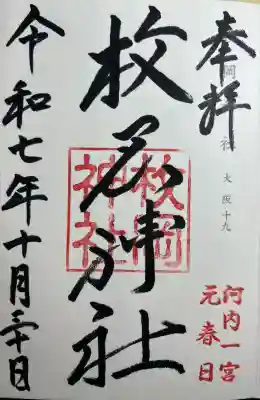 奉拝
岡
社
大阪十九
河内一宮
元春日
枚岡神社
枚岡
神社
令和七年十月三十日